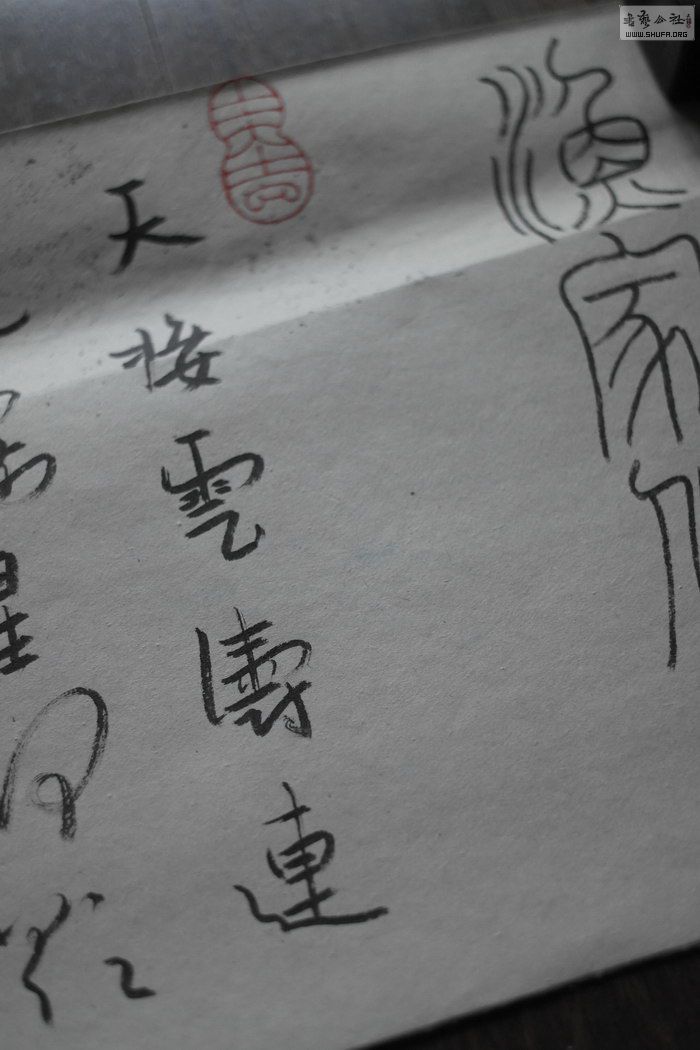 書藝公社
WWW.SHUFA.ORG
漁家
天接雲濤連
星河欲